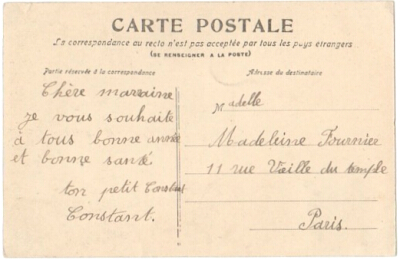 CARTE POSTALE
La correspondance au recto n'est pas acceptée par tous les pays étrangers
(SE RENSEIGNER A LA POSTE)
Partie réservée à la correspondance
Adresse du destinataire
Chère marraine
je vous souhaite
à tous bonne année
et bonne santé
ton petit
Constant.
Madelle
Madeleine Fournier
11 rue Vieille du temple
Paris.